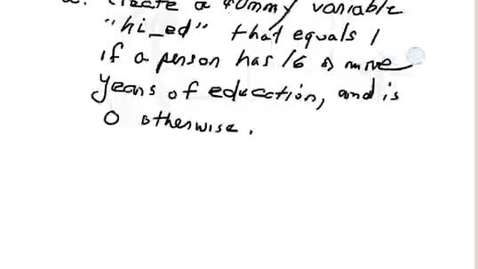 Create a dummy variable
"hi_ed" that equals 1
if a person has 16 or more
years of education, and is
0 otherwise.